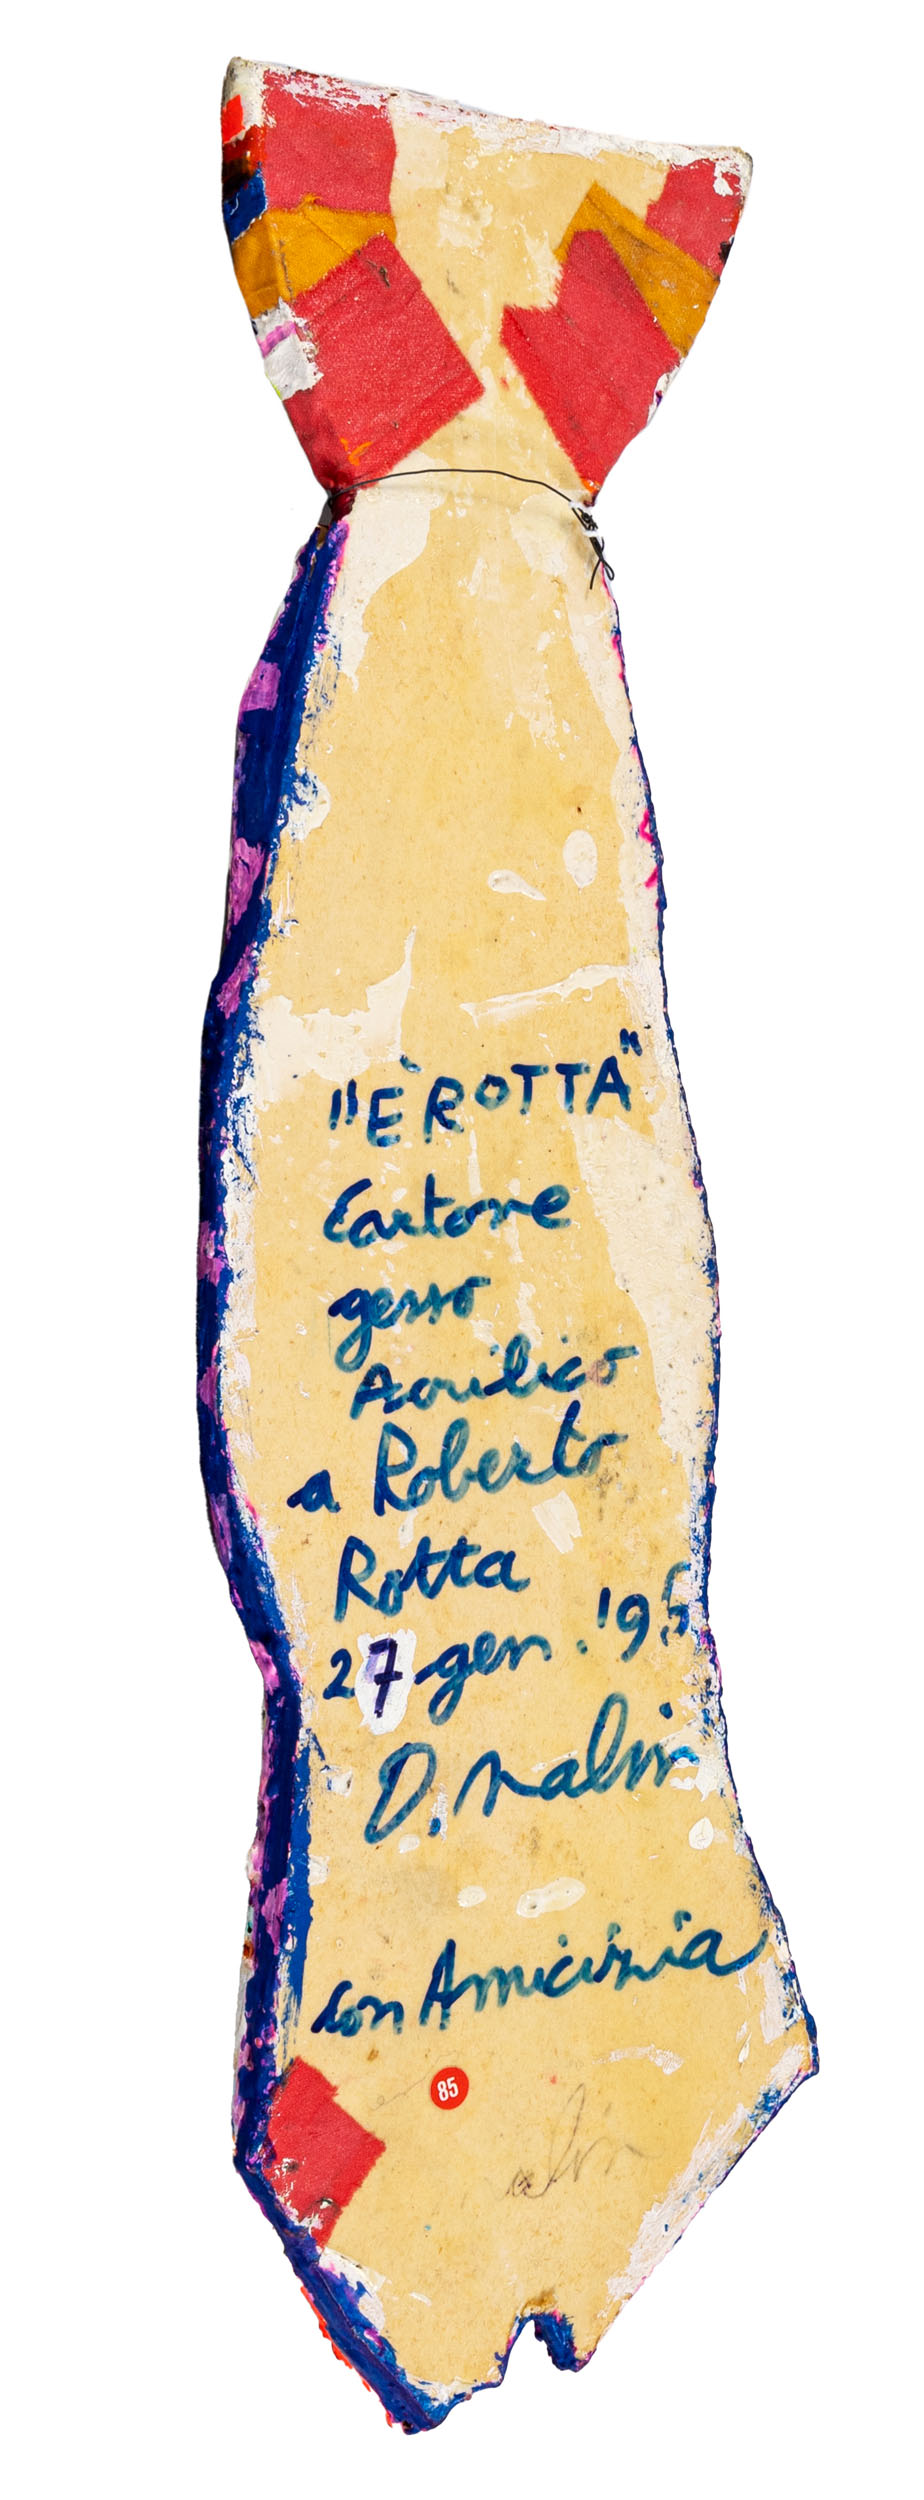 "È ROTTA"
Cartone
gesso
Acrilico
a Roberto
Rotta
27 gen. '95
D. Nalin
con Amicizia
85